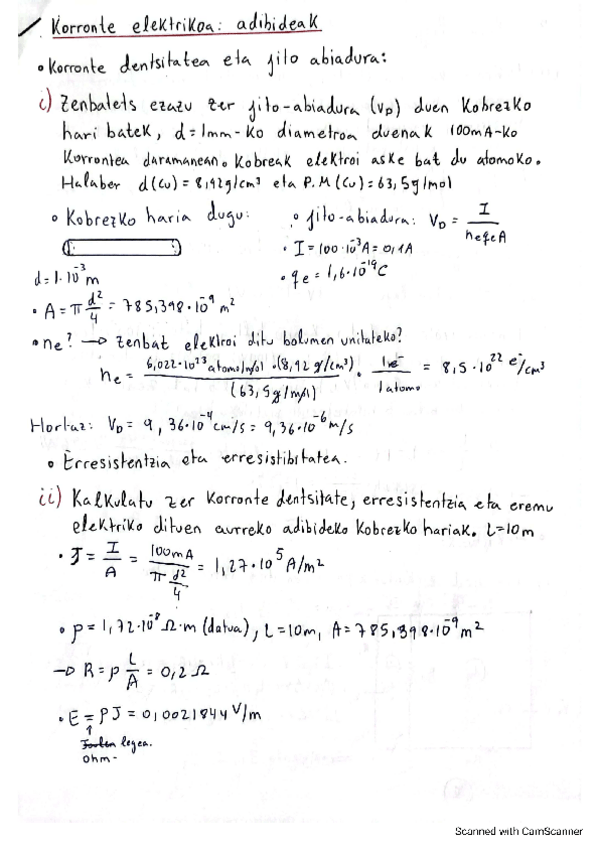 Korronte elektrikoa: adibideak
• Korronte dentsitatea eta jito abiadura:
i) Zenbatets ezazu zer jito-abiadura (V_D) duen Kobrezko
hari batek, d=1mm-ko diametroa duenak 100mA-ko
Korrontea daramanean. Kobreak elektroi aske bat du atomoko.
Halaber d(Cu)=8,92g/cm³ eta P.M(Cu)=63,5g/mol
• Kobrezko haria dugu:
• jito-abiadura: V_D = I / n_e q_e A
• I=100·10⁻³A=0,1A
d=1·10⁻³m
• q_e=1,6·10⁻¹⁹C
• A=π d²/4 = 785,398·10⁻⁹ m²
• ne? → Zenbat elektroi ditu bolumen unitateko?
n_e = 6,022·10²³ atomo/mol · (8,92 g/cm³) / (63,5g/mol) · 1e⁻ / 1atomo = 8,5·10²² e⁻/cm³
Hortaz: V_D = 9,36·10⁻⁴cm/s = 9,36·10⁻⁶m/s
• Erresistentzia eta erresistibitatea.
ii) Kalkulatu zer korronte dentsitate, erresistentzia eta eremu
elektriko dituen aurreko adibideko Kobrezko hariak. L=10m
• J = I/A = 100mA / π d²/4 = 1,27·10⁵ A/m²
• ρ=1,72·10⁻⁸ Ω·m (datua), L=10m, A=785,398·10⁻⁹m²
→ R=ρ L/A = 0,2 Ω
• E = ρJ = 0,0021844 V/m
↑
legea.
Ohm-
Scanned with CamScanner